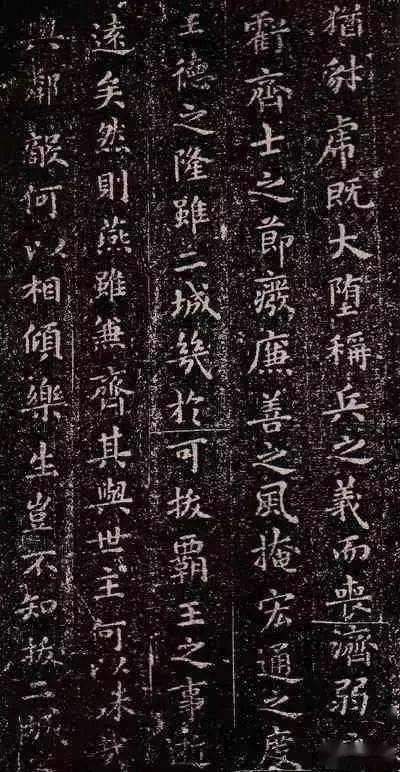 猶豺虎既大墮稱兵之義而喪濟弱
虧齊士之節廢廉善之風掩宏通之度
王德之隆雖二城幾於可拔霸王之事逝
遠矣然則燕雖兼齊其與世主何以殊哉
與鄰敵何以相傾樂生豈不知拔二城